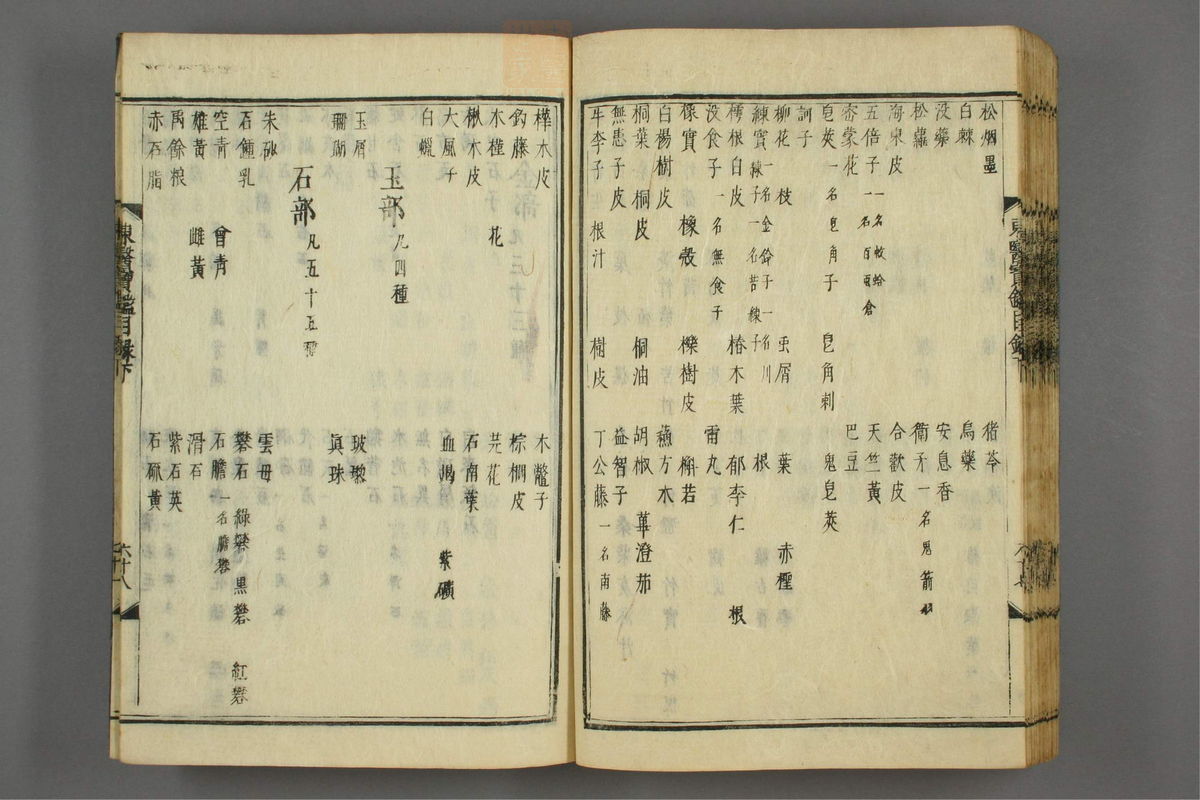 松烟墨 猪苓
白棘 烏藥
没藥 安息香
松蘿 衛矛一名鬼箭羽
海東皮 合歡皮
五倍子一名蚊蛤一名百䖝倉 天竺黃
密蒙花 巴豆
皂莢一名皂角子 皂角刺 鬼皂莢
訶子
柳花 枝 葉 赤檉
練實練子一名金鈴子一名川 根
樗根白皮 椿木葉 郁李仁 根
没食子一名無食子 雷丸
橡實 橡殼 櫟樹皮 槲若
白楊樹皮 蘓方木
桐葉 桐皮 桐油 胡椒 蓽澄茄
無患子皮 益智子
牛李子 根汁 樹皮 丁公藤一名南藤
東醫寶鑑目錄下
樺木皮 木鼈子
釣藤 棕櫚皮
木槿 花 芫花
楸木皮 石南葉
大風子 血竭 紫礦
白蠟
玉部凡四種
玉屑 玻瓈
珊瑚 眞珠
石部凡五十五種
朱砂 雲母
石鍾乳 礬石 綠礬 黑礬 紅礬
空青 曾青 石膽一名膽礬
雄黃 雌黃 滑石
禹餘粮 紫石英
赤石脂 石硫黃
東醫寶鑑目錄下 六十八